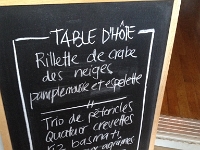 TABLE D'HÔTE
Rillette de crabe
des neiges
pamplemousse et espelette
//
Trio de pétoncles
Quatuor crevettes
Riz basmati
aux agrumes